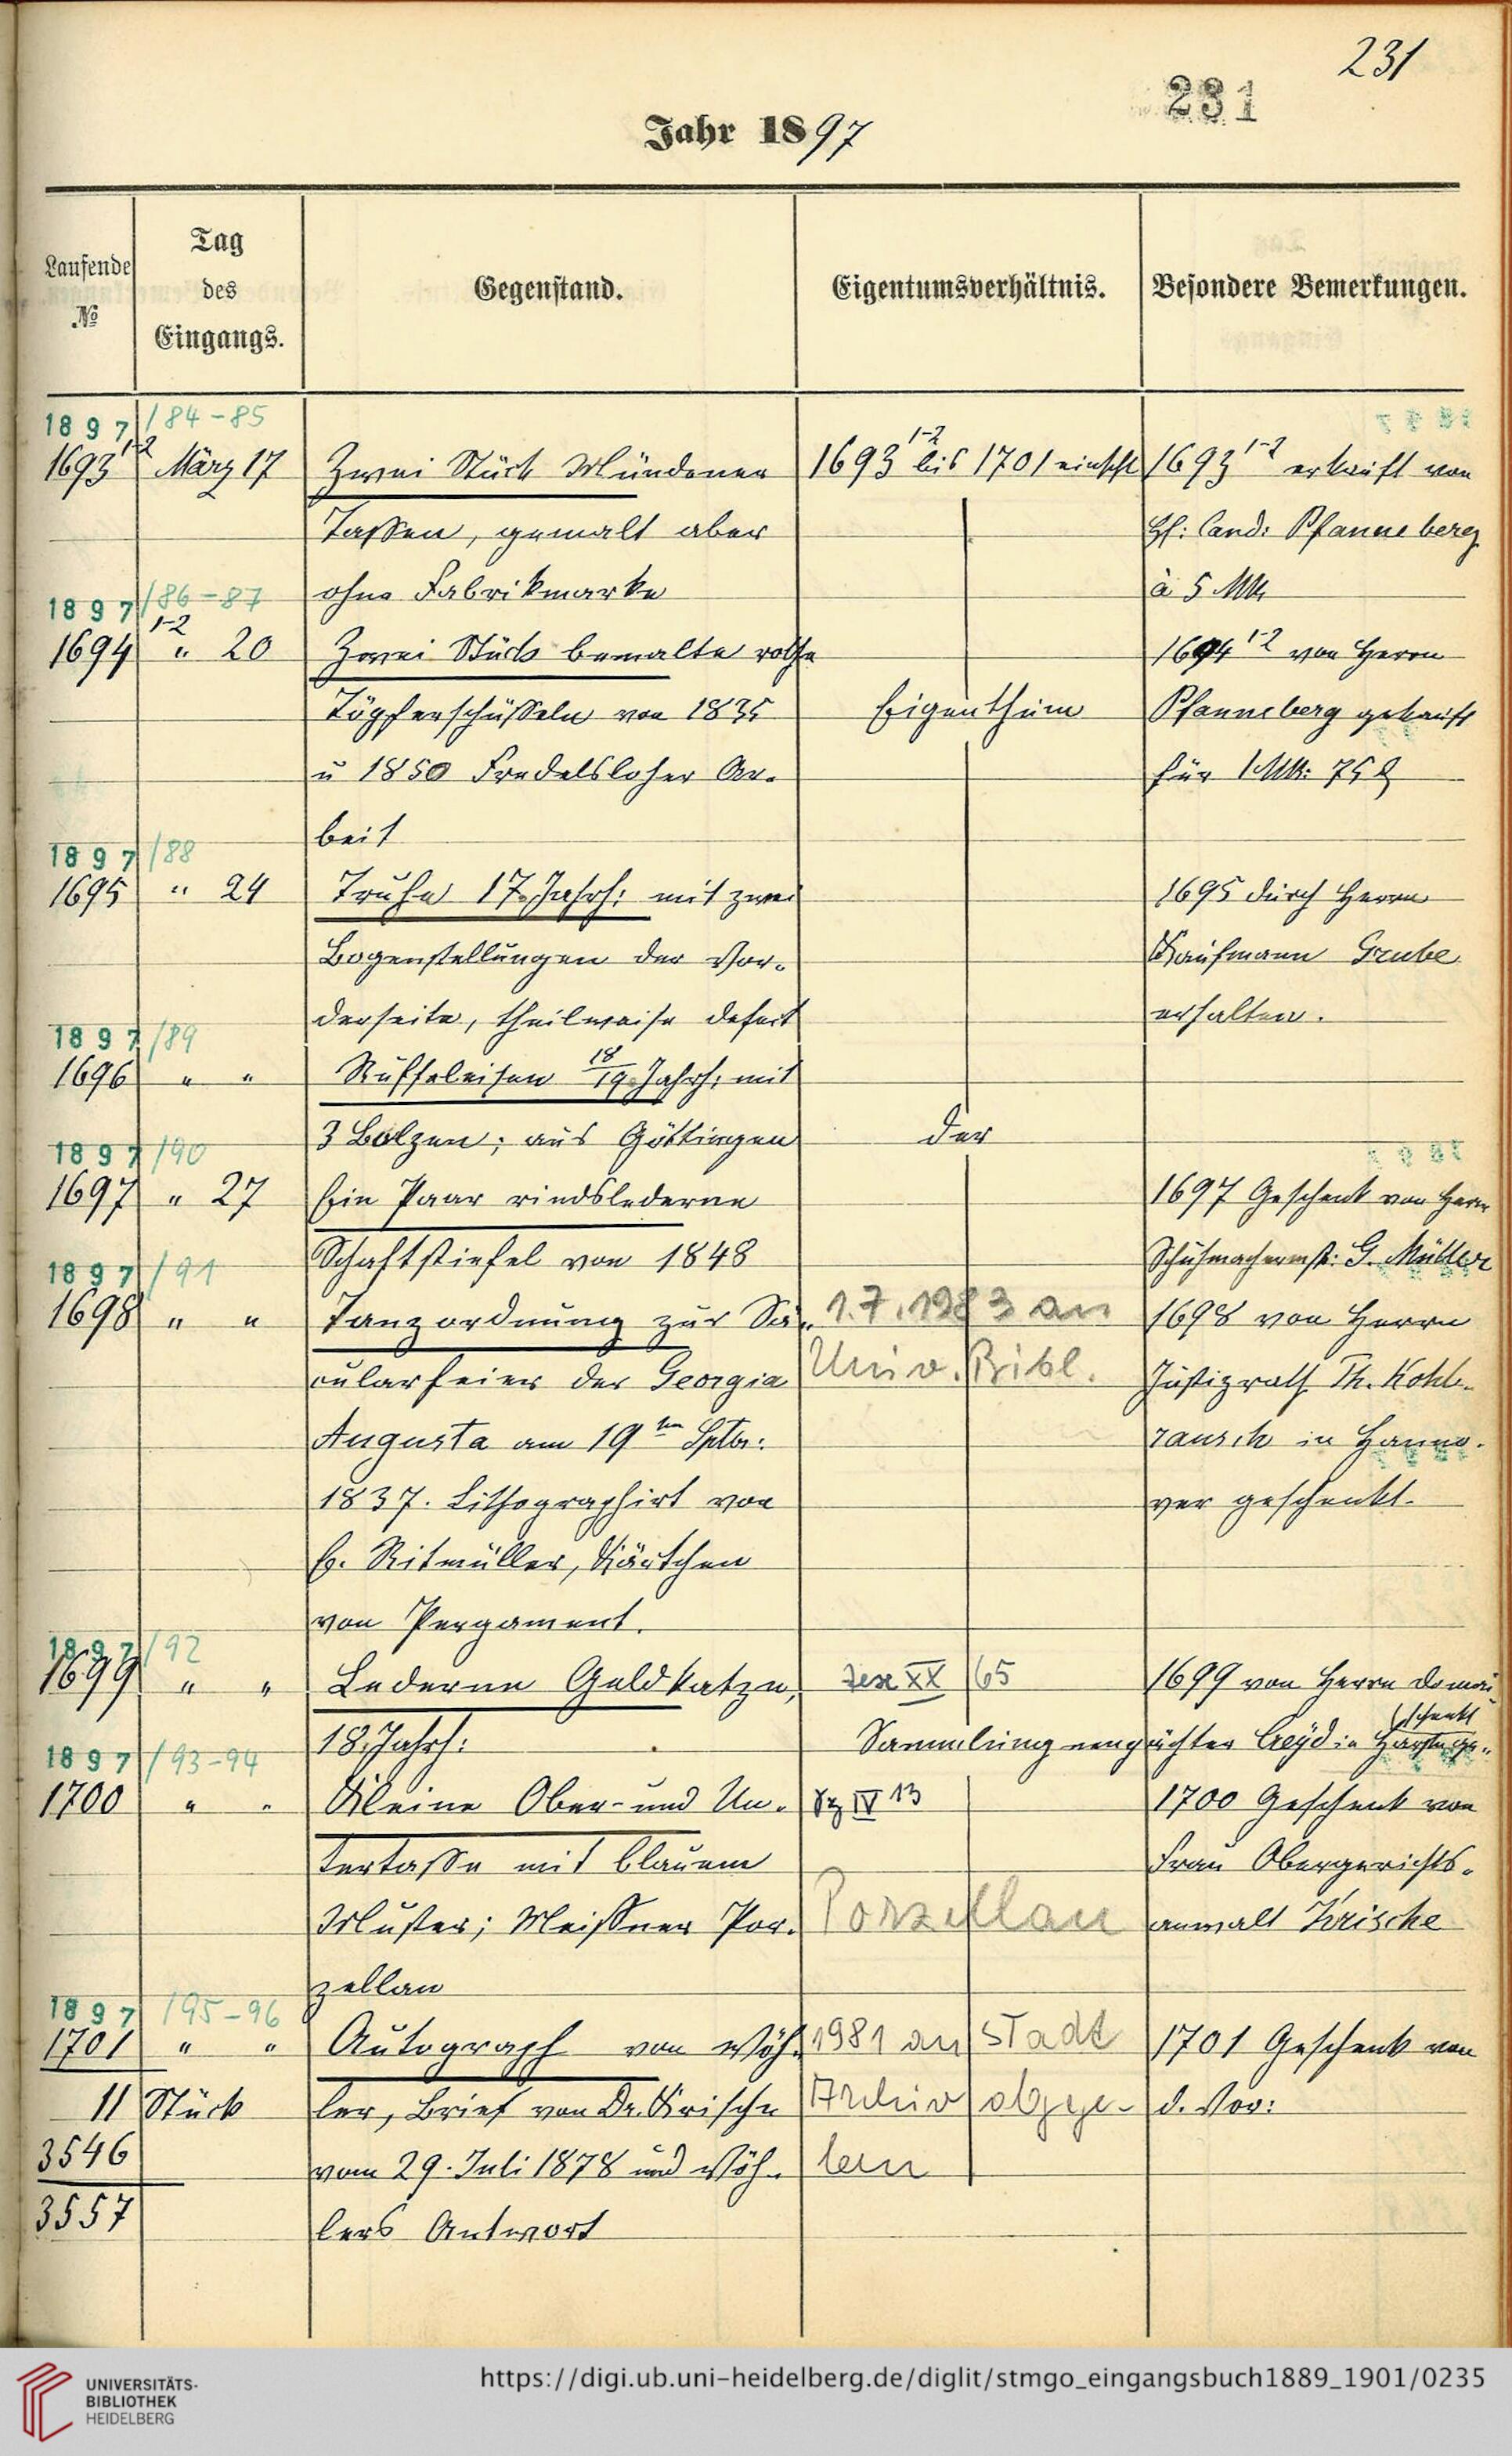 231
231
Jahr 1897
Laufende
No
Tag
des
Eingangs.
Gegenstand.
Eigentumsverhältnis.
Besondere Bemerkungen.
1897/84-85
1693 1-2 März 17 Zwei Stück Mündener 1693 1-2 bis 1701 einschl 1693 1-2 erkauft von
Tassen, gemalt aber H: Cand: Pfanneberg
ohne Fabrikmarke à 5 Mk
1897/86-87
1694 1-2 " 20 Zwei Stück bemalte rothe 1694 1-2 von Herrn
Töpferschüsseln von 1835 Eigenthum Pfanneberg gekauft
u 1850 Fredelsloher Ar- für 1 Mk: 75 ₰
beit
1897/88
1695 " 24 Truhe 17. Jahrh: mit zwei 1695 durch Herrn
Bogenstellungen der Vor- Kaufmann Grube
derseite, theilweise defect erhalten.
1897/89
1696 " " Rüffeleisen 18/19. Jahrh: mit
3 Bolzen; aus Göttingen der
1897/90
1697 " 27 Ein Paar rindslederne 1697 Geschenk von Herrn
Schaftstiefel von 1848 Schuhmachermst: G. Müller
1897/91
1698 " " Tanzordnung zur Sä- 1.7.1983 an 1698 von Herrn
cularfeier der Georgia Univ. Bibl. Justizrath Th. Kohl-
Augusta am 19ten Sptbr: rausch in Hanno-
1837. Lithographirt von ver geschenkt.
E. Ritmüller, Kärtchen
von Pergament.
1897/92
1699 " " Lederne Geldkatze, XX 65 1699 von Herrn Domai
18. Jahrh: Sammlung nenpächter Creyd in Harste ge-
schenkt
1897/93-94
1700 " " Kleine Ober- und Un- IV 13 1700 Geschenk von
tertasse mit blauem Frau Obergerichts-
Muster; Meissner Por- Porzellan anwalt Krische
zellan
1897/95-96
1701 " " Autograph von Wöh- 1981 an Stadt 1701 Geschenk von
11 Stück ler, Brief von Dr. Krische Archiv abgge- d. Vor:
3546 vom 29. Juli 1878 und Wöh- ben
3557 lers Antwort
UNIVERSITÄTS-
BIBLIOTHEK
HEIDELBERG
https://digi.ub.uni-heidelberg.de/diglit/stmgo_eingangsbuch1889_1901/0235